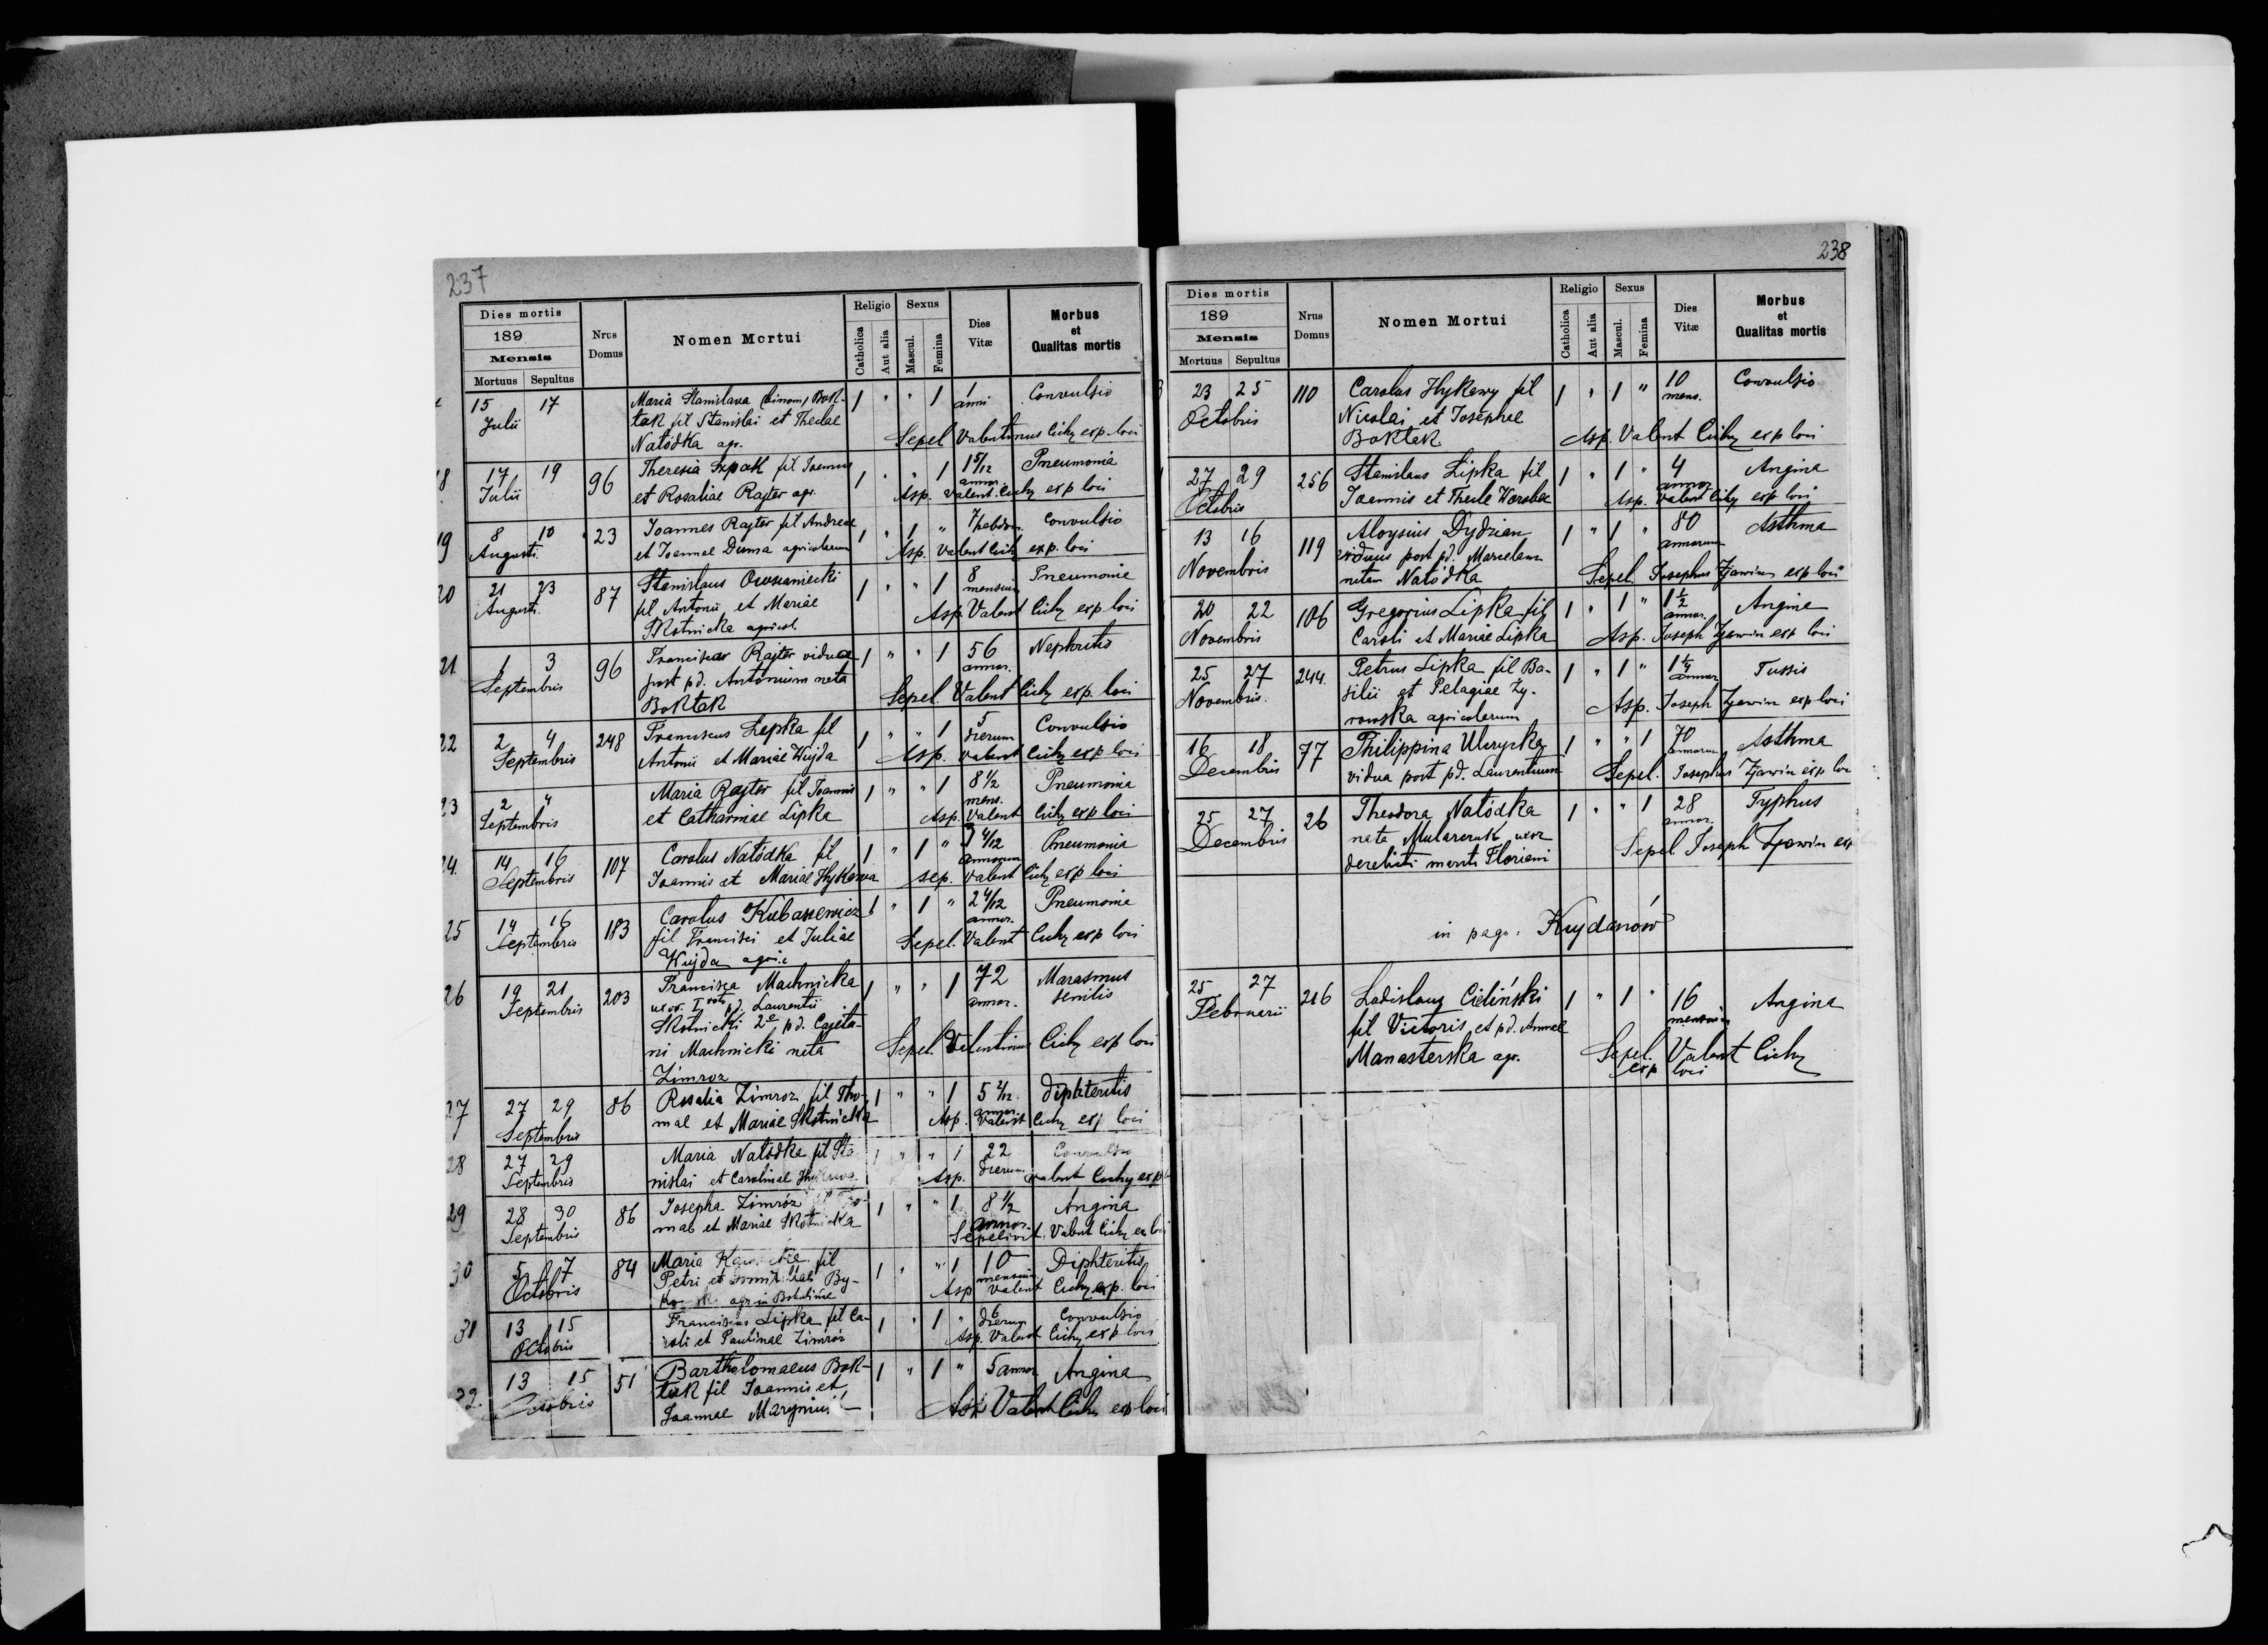 237
Dies mortis
189
Mensis
Mortuus Sepultus
Nrus Domus
Nomen Mortui
Religio
Catholica Aut alia
Sexus
Mascul. Femina
Dies Vitæ
Morbus et Qualitas mortis
15 17 Maria Stanislava (binom) Bok- 1 " " 1 1 Convulsio
Julii tak fil Stanislai et Theclae anni
Natódka agr. Sepel Valentinus Cichy exp. loci
18 17 19 96 Theresia fil Joannis 1 " " 1 1 5/12 Pneumonia
Julii et Rosaliae Rajter agr. annor.
Asp. Valent. Cichy exp loci
19 8 10 23 Joannes Rajter fil Andreae 1 " 1 " 7 hebdom. Convulsio
Augusti et Joannae Duma agricolarum Asp. Valent Cichy exp. loci
20 21 23 87 Stanislaus Owsianiecki 1 " " 1 8 Pneumonia
Augusti fil Antonii et Mariae mensium
Skotnicka agricol. Asp. Valent Cichy exp loci
21 1 3 96 Rajter vidua 1 " " 1 56 Nephritis
Septembris post pd. Antonium nata annor.
Boktak Sepel. Valent Cichy exp. loci
22 2 4 248 Franciscus Lepka fil 1 " " 1 5 Convulsio
Septembris Antonii et Mariae Wujda dierum
Asp. Valent Cichy exp loci
23 2 4 Maria Rajter fil Joannis 1 " " 1 8 1/2 Pneumonia
Septembris et Catharinae Lipka mens.
Asp. Valent Cichy exp loci
24. 14 16 107 Carolus Natódka fil 1 " 1 " 3 4/12 Pneumonia
Septembris Joannis et Mariae Hykawa annorum
sep. Valent Cichy exp loci
25 14 16 183 Carolus Kubasiewicz 1 " 1 " 2 4/12 Pneumonia
Septembris fil Francisci et Juliae annor.
Wujda agric Sepel. Valent Cichy exp loci
26 19 21 203 Francisca Machnicka 1 " " 1 72 Marasmus
Septembris uxor. I voti pd. Laurentii annor. senilis
Skotnicki 2o pd. Cajeta-
ni Machnicki nata Sepel. Valentinus Cichy exp loci
Zimroz
27 27 29 86 Rosalia Zimroz fil Tho- 1 " " 1 5 2/12 Diphteritis
Septembris mae et Mariae Skotnicka annor.
Asp. Valent Cichy exp loci
28 27 29 Maria Natódka fil Sta- 1 " " 1 22 Convulsio
Septembris nislai et Carolinae dierum
Asp. Valent Cichy exp
29 28 30 86 Josepha Zimróz fil Tho- 1 " " 1 8 1/2 Angina
Septembris mae et Mariae Skotnicka annor.
Sepelivit. Valent Cichy ex loci
30 5 7 84 Maria fil 1 " " 1 10 Diphteritis
Octobris Petri et By- mensium
agr in Asp Valent Cichy exp. loci
31 13 15 Franciscus Lipka fil Ca- 1 " 1 " 6 Convulsio
Octobris roli et Paulinae Zimróz dierum
Asp. Valent Cichy exp loci
13 15 51 Bartholomaeus Bok- 1 " 1 " 5 annor Angina
Octobris tak fil Joannis et
Joannae Asp Valent Cichy exp loci
238
Dies mortis
189
Mensis
Mortuus Sepultus
Nrus Domus
Nomen Mortui
Religio
Catholica Aut alia
Sexus
Mascul. Femina
Dies Vitæ
Morbus et Qualitas mortis
23 25 110 Carolus Hykawy fil 1 " 1 " 10 Convulsio
Octobris Nicolai et Josephae mens.
Boktak Asp. Valent Cichy exp loci
27 29 256 Stanislaus Lipka fil 1 " 1 " 4 Angina
Octobris Joannis et Thecle Worobec annor
Asp. Valent Cichy exp loci
13 16 119 Aloysius Dydzian 1 " 1 " 80 Asthma
Novembris viduus post pd. Marcelam annorum
natam Natódka Sepel Josephus Zjawin exp loci
20 22 106 Gregorius Lipka fil 1 " 1 " 1 1/2 Angina
Novembris Caroli et Mariae Lipka annor.
Asp. Joseph Zjawin exp loci
25 27 244. Petrus Lipka fil Ba- 1 " 1 " 1 1/4 Tussis
Novembris. silii et Pelagiae Ży- annor
rowska agricolarum Asp. Joseph Zjawin exp loci
16 18 77 Philippina 1 " " 1 70 Asthma
Decembris vidua post pd. Laurentium annorum
Sepel. Josephus Zjawin exp loc
25 27 26 Theodora Natódka 1 " " 1 28 Typhus
Decembris nata Mularczuk uxor annor.
derelicti mariti Floriani Sepel Joseph Zjawin exp
in pago. Kujdanów
25 27 216 Ladislaus Cieliński 1 " 1 " 16 Angina
Februarii fil Victoris et pd. Annae mensium
Manasterska agr. Sepel. Valent Cichy
exp loci